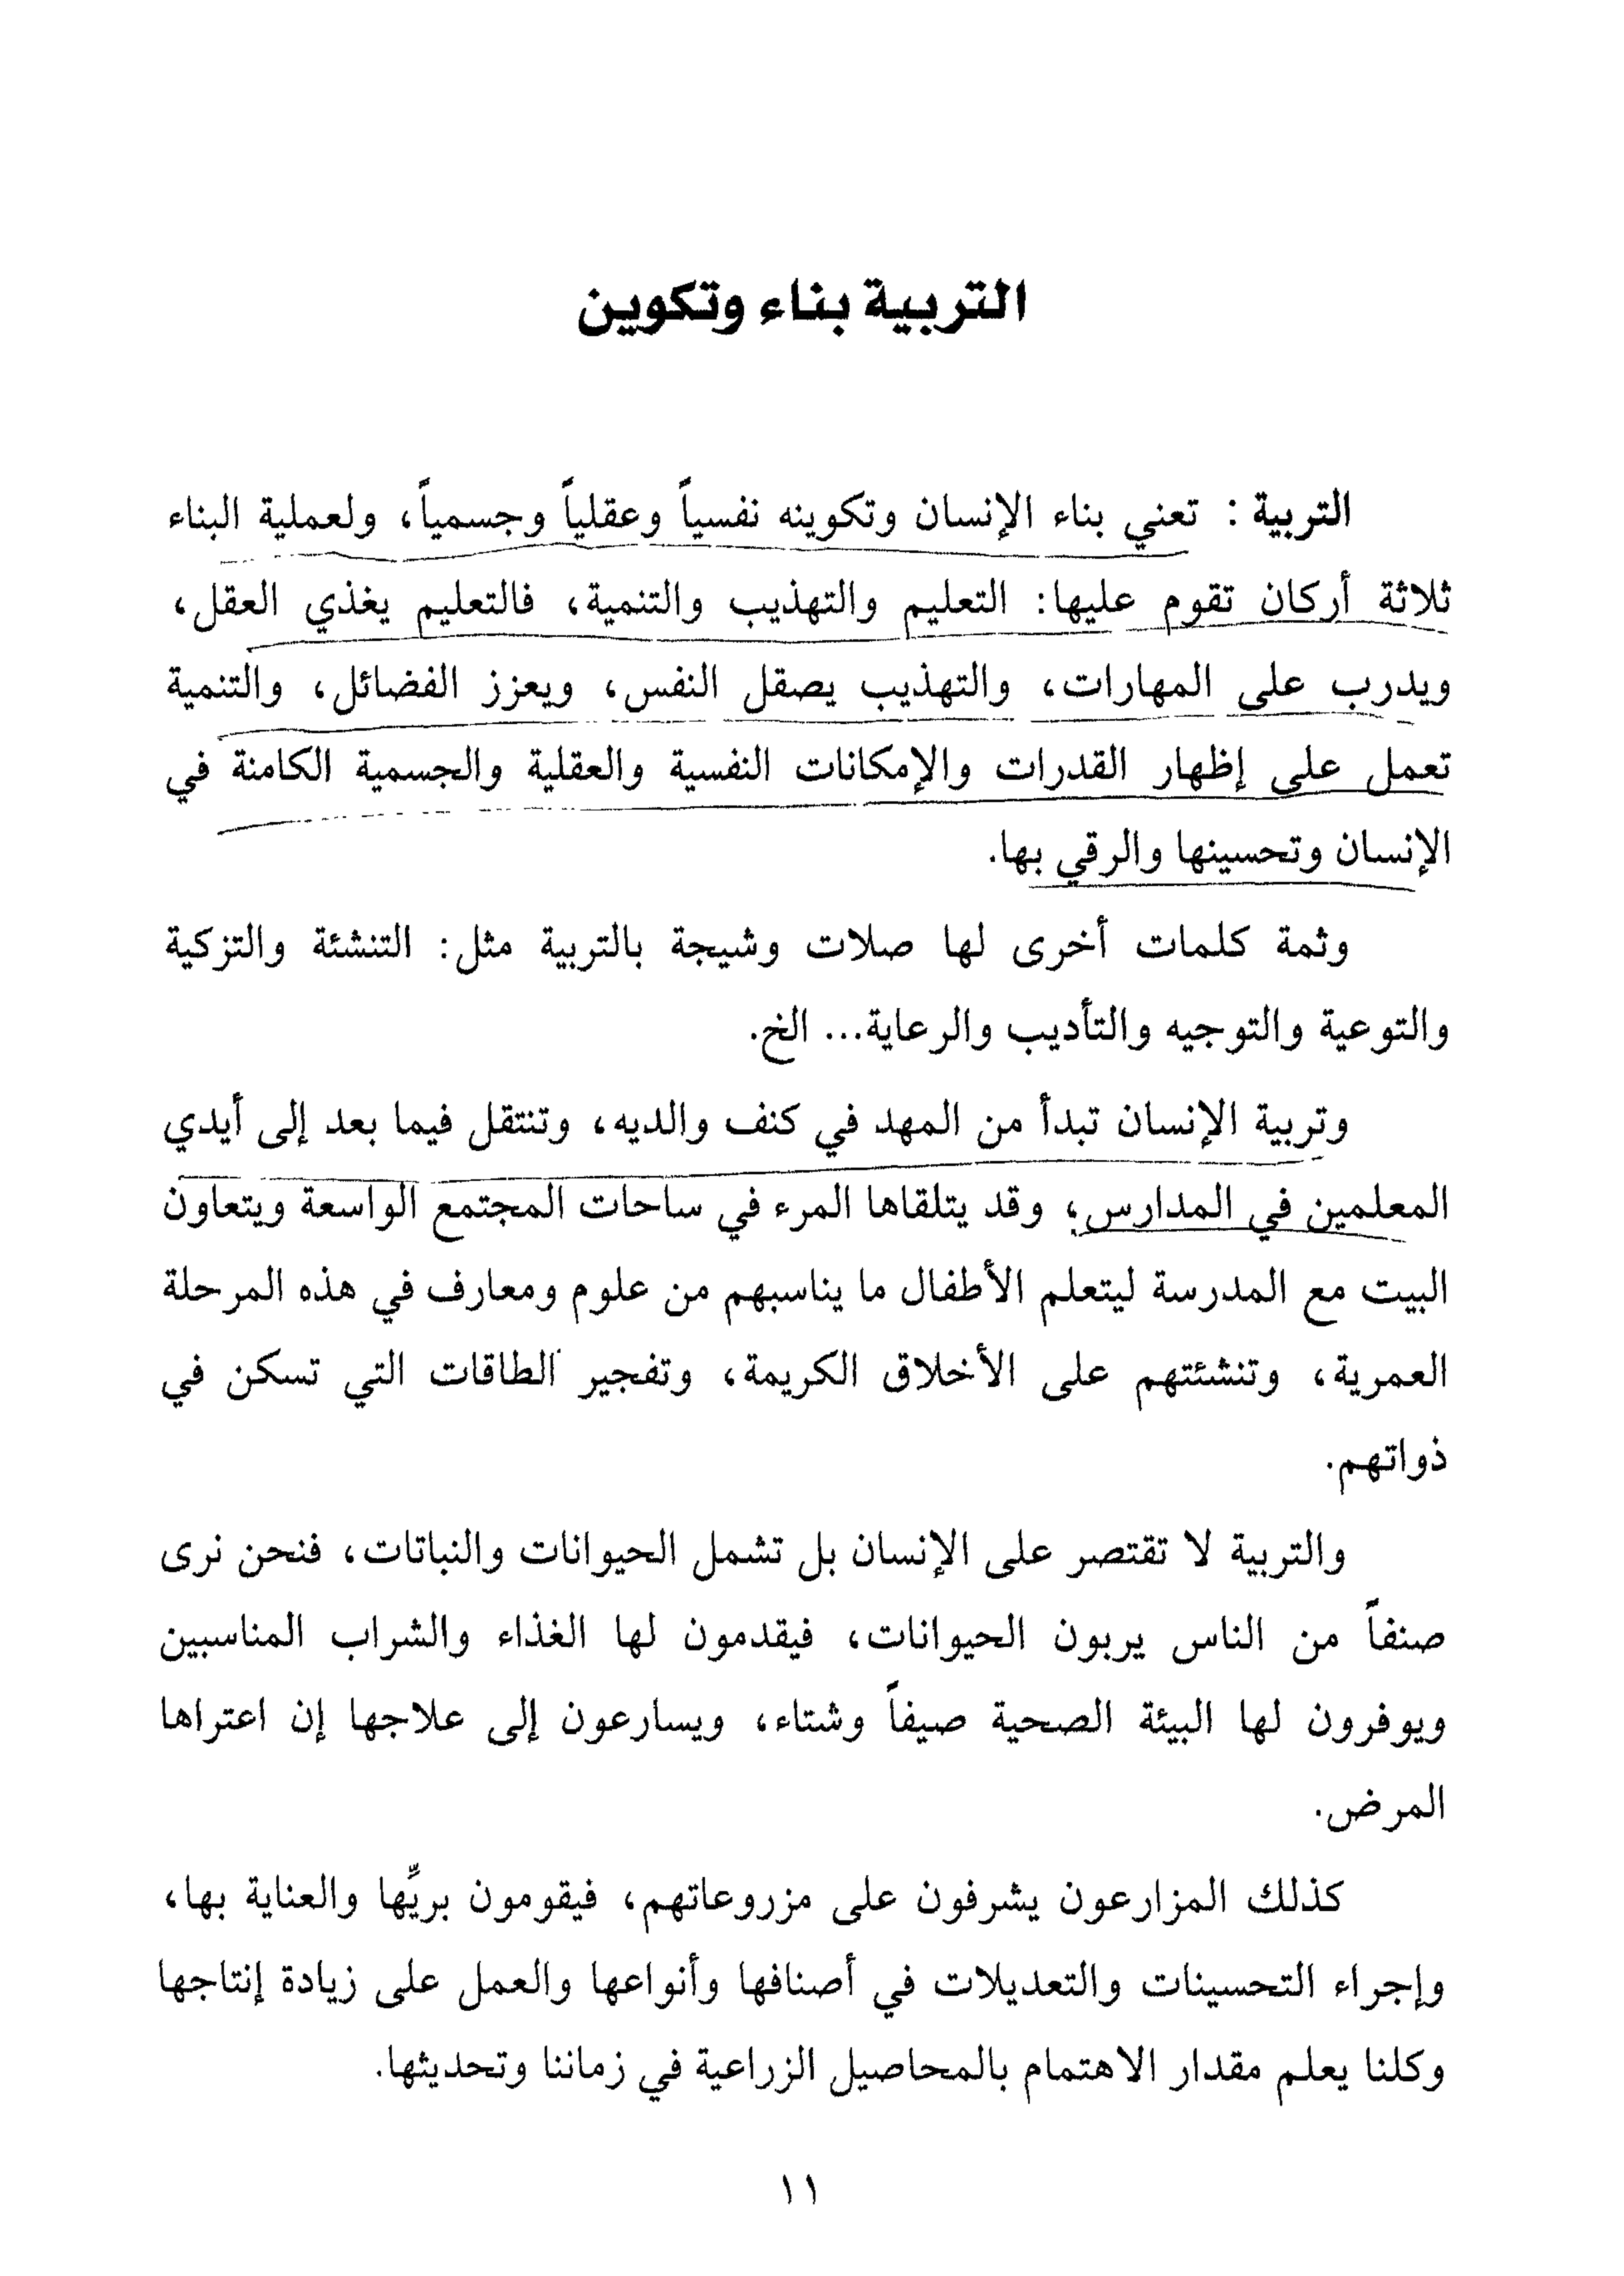 التربية بناء وتكوين
التربية : تعني بناء الإنسان وتكوينه نفسياً وعقلياً وجسمياً، ولعملية البناء
ثلاثة أركان تقوم عليها: التعليم والتهذيب والتنمية، فالتعليم يغذي العقل،
ويدرب على المهارات، والتهذيب يصقل النفس، ويعزز الفضائل، والتنمية
تعمل على إظهار القدرات والإمكانات النفسية والعقلية والجسمية الكامنة في
الإنسان وتحسينها والرقي بها.
وثمة كلمات أخرى لها صلات وشيجة بالتربية مثل: التنشئة والتزكية
والتوعية والتوجيه والتأديب والرعاية... الخ.
وتربية الإنسان تبدأ من المهد في كنف والديه، وتنتقل فيما بعد إلى أيدي
المعلمين في المدارس، وقد يتلقاها المرء في ساحات المجتمع الواسعة ويتعاون
البيت مع المدرسة ليتعلم الأطفال ما يناسبهم من علوم ومعارف في هذه المرحلة
العمرية، وتنشئتهم على الأخلاق الكريمة، وتفجير الطاقات التي تسكن في
ذواتهم.
والتربية لا تقتصر على الإنسان بل تشمل الحيوانات والنباتات، فنحن نرى
صنفاً من الناس يربون الحيوانات، فيقدمون لها الغذاء والشراب المناسبين
ويوفرون لها البيئة الصحية صيفاً وشتاء، ويسارعون إلى علاجها إن اعتراها
المرض.
كذلك المزارعون يشرفون على مزروعاتهم، فيقومون بريِّها والعناية بها،
وإجراء التحسينات والتعديلات في أصنافها وأنواعها والعمل على زيادة إنتاجها
وكلنا يعلم مقدار الاهتمام بالمحاصيل الزراعية في زماننا وتحديثها.
١١